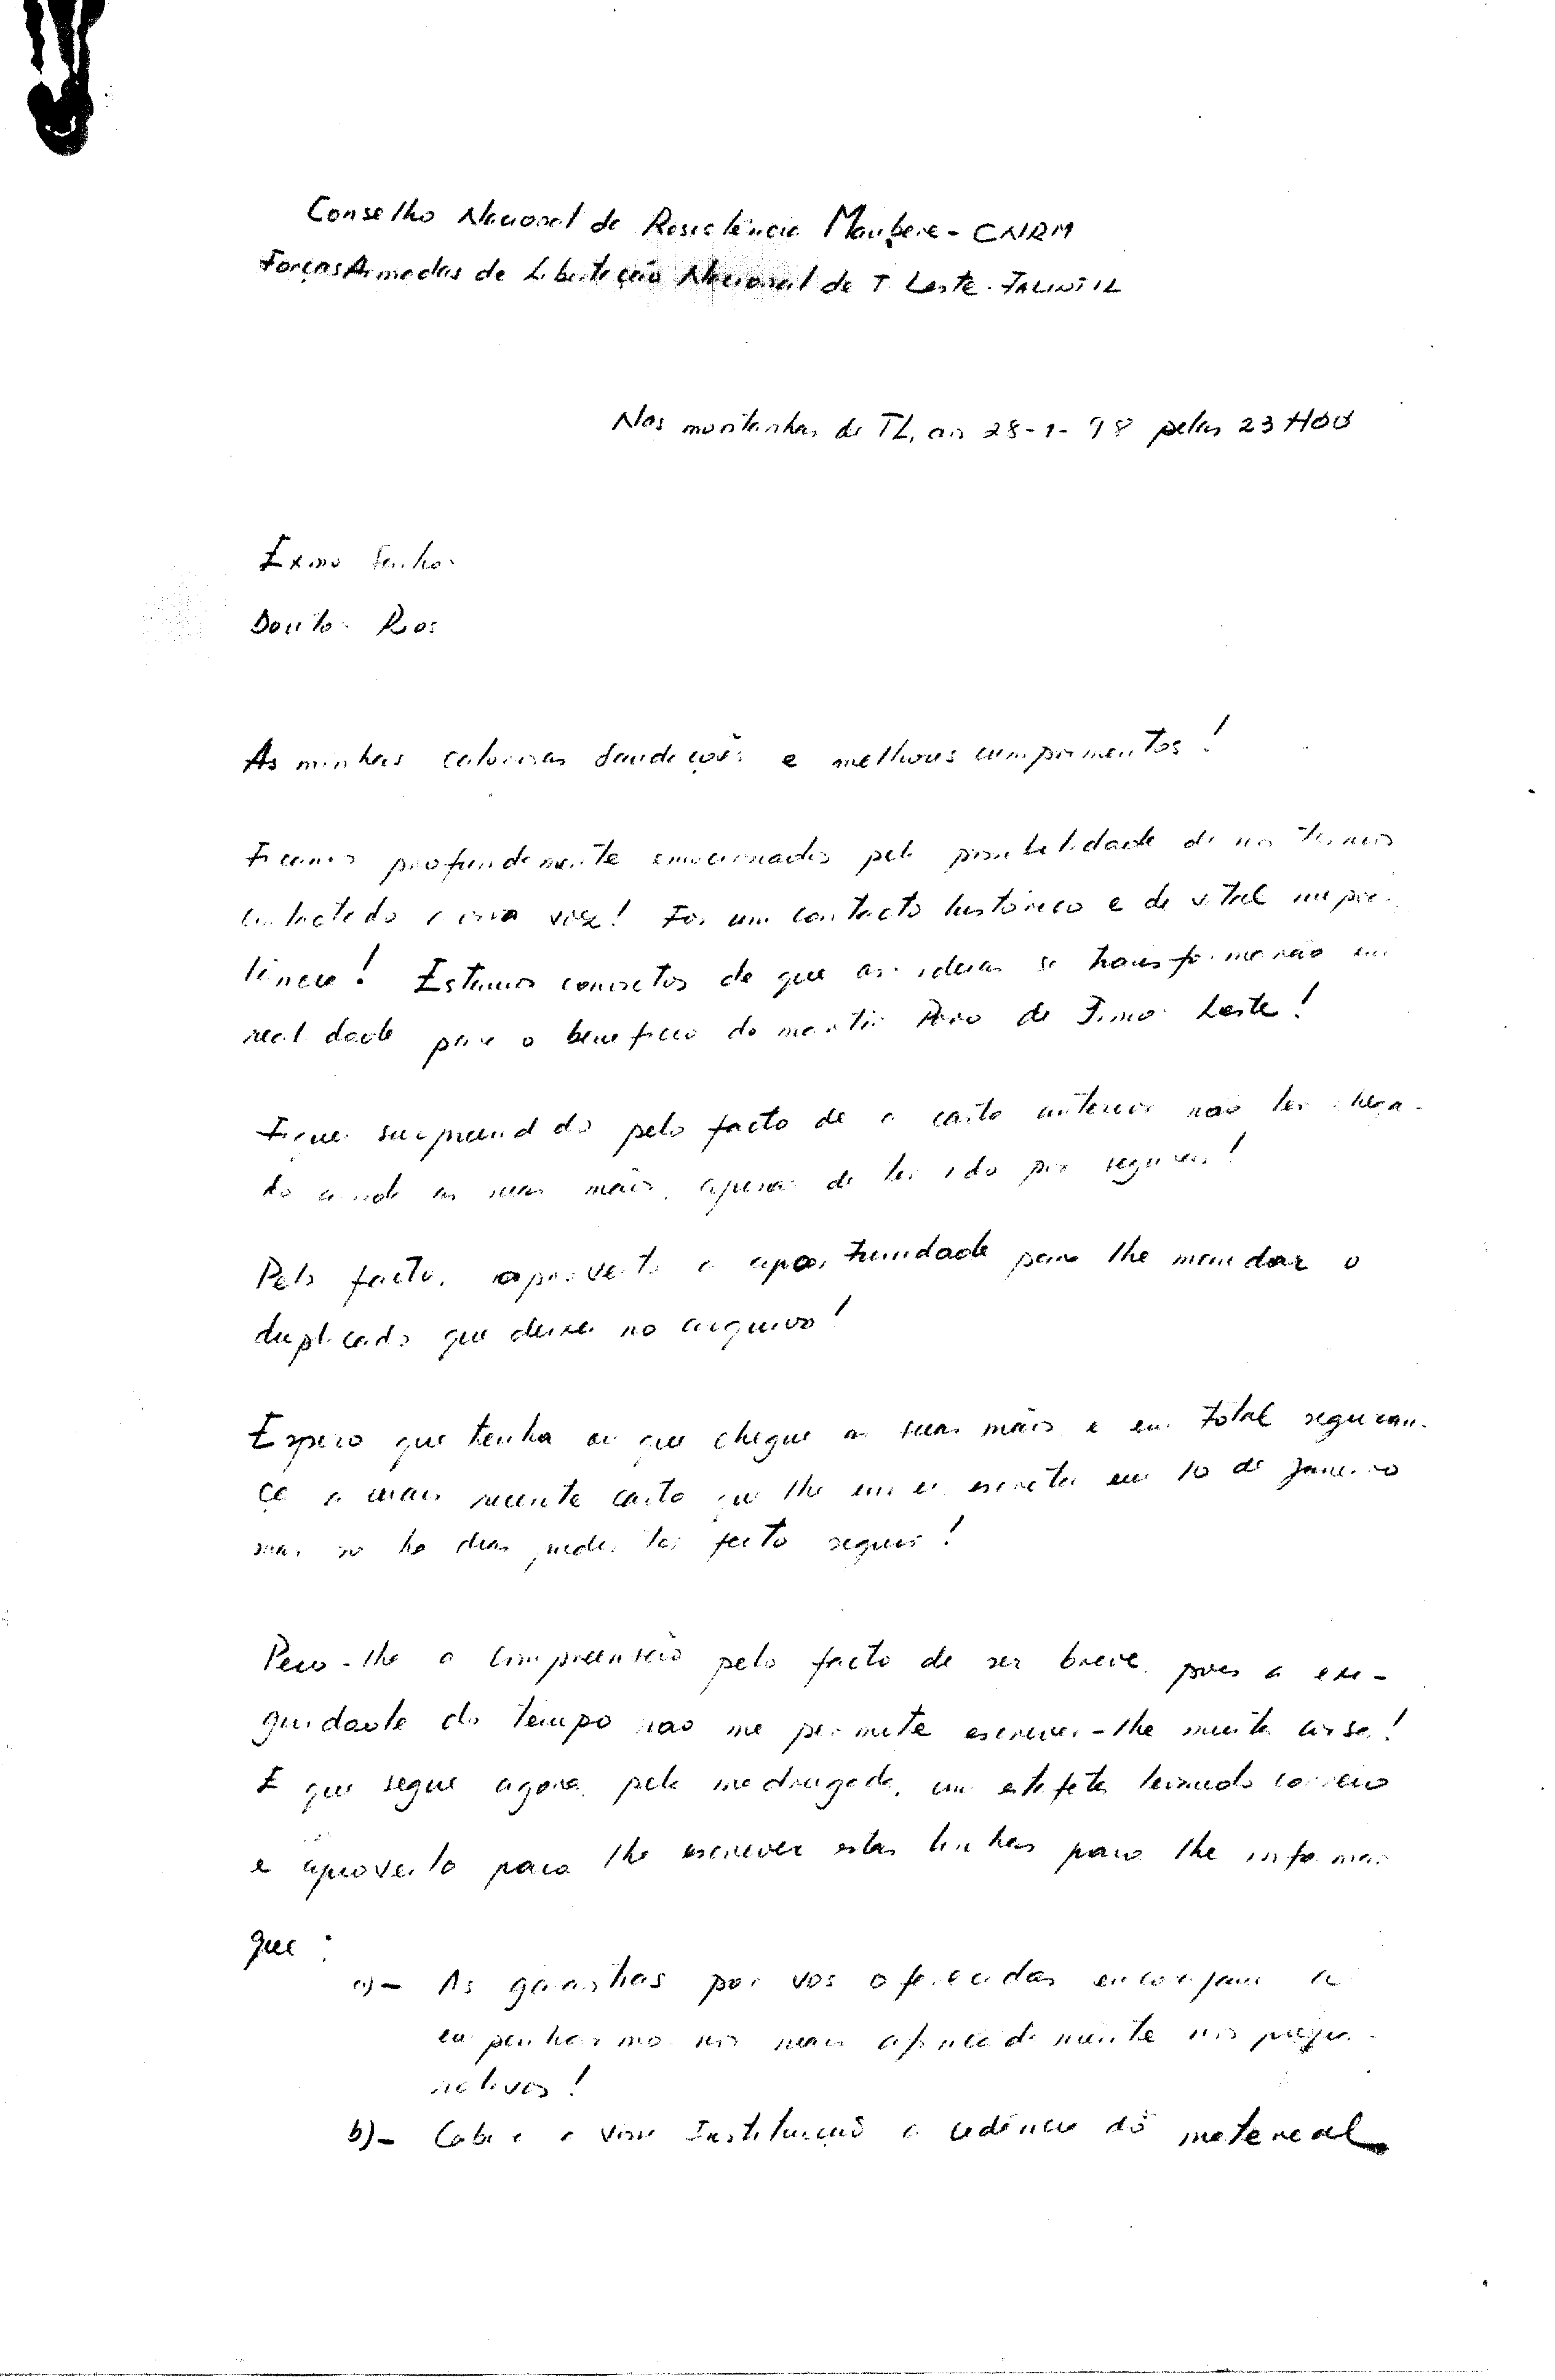 Conselho Nacional de Resistência Maubere - CNRM
Forças Armadas de Libertação Nacional de T. Leste - FALINTIL
Nas montanhas de TL, aos 28-1-98 pelas 23H00
Exmo Senhor
Doutor Rios
As minhas calorosas saudações e melhores cumprimentos!
Ficamos profundamente emocionados pela possibilidade de nos termos
contactado viva voz! Foi um contacto histórico e de vital impor-
tância! Estamos convictos de que as ideias se transformarão em
realidade para o benefício do martir Povo de Timor Leste!
Fiquei surpreendido pelo facto de a carta anterior não ter chega-
do ainda as suas mãos, apesar de ter ido por seguro!
Pelo facto, aproveito a oportunidade para lhe mandar o
duplicado que deixei no arquivo!
Espero que tenha ou que chegue as suas mãos e em total seguran-
ça a mais recente carta que lhe enviei escrita em 10 de Janeiro
mas só há dias pude ter feito seguir!
Peço-lhe a compreensão pelo facto de ser breve, pois a exi-
guidade do tempo não me permite escrever-lhe muita coisa!
É que segue agora, pela madrugada, um estafeta levando correio
e aproveito para lhe escrever estas linhas para lhe informar
que:
a)- As garantias por vos oferecidas encorajam a
empenharmo-nos mais afincadamente nos prepa-
rativos!
b)- Cabe a vossa Instituição a cedência do material